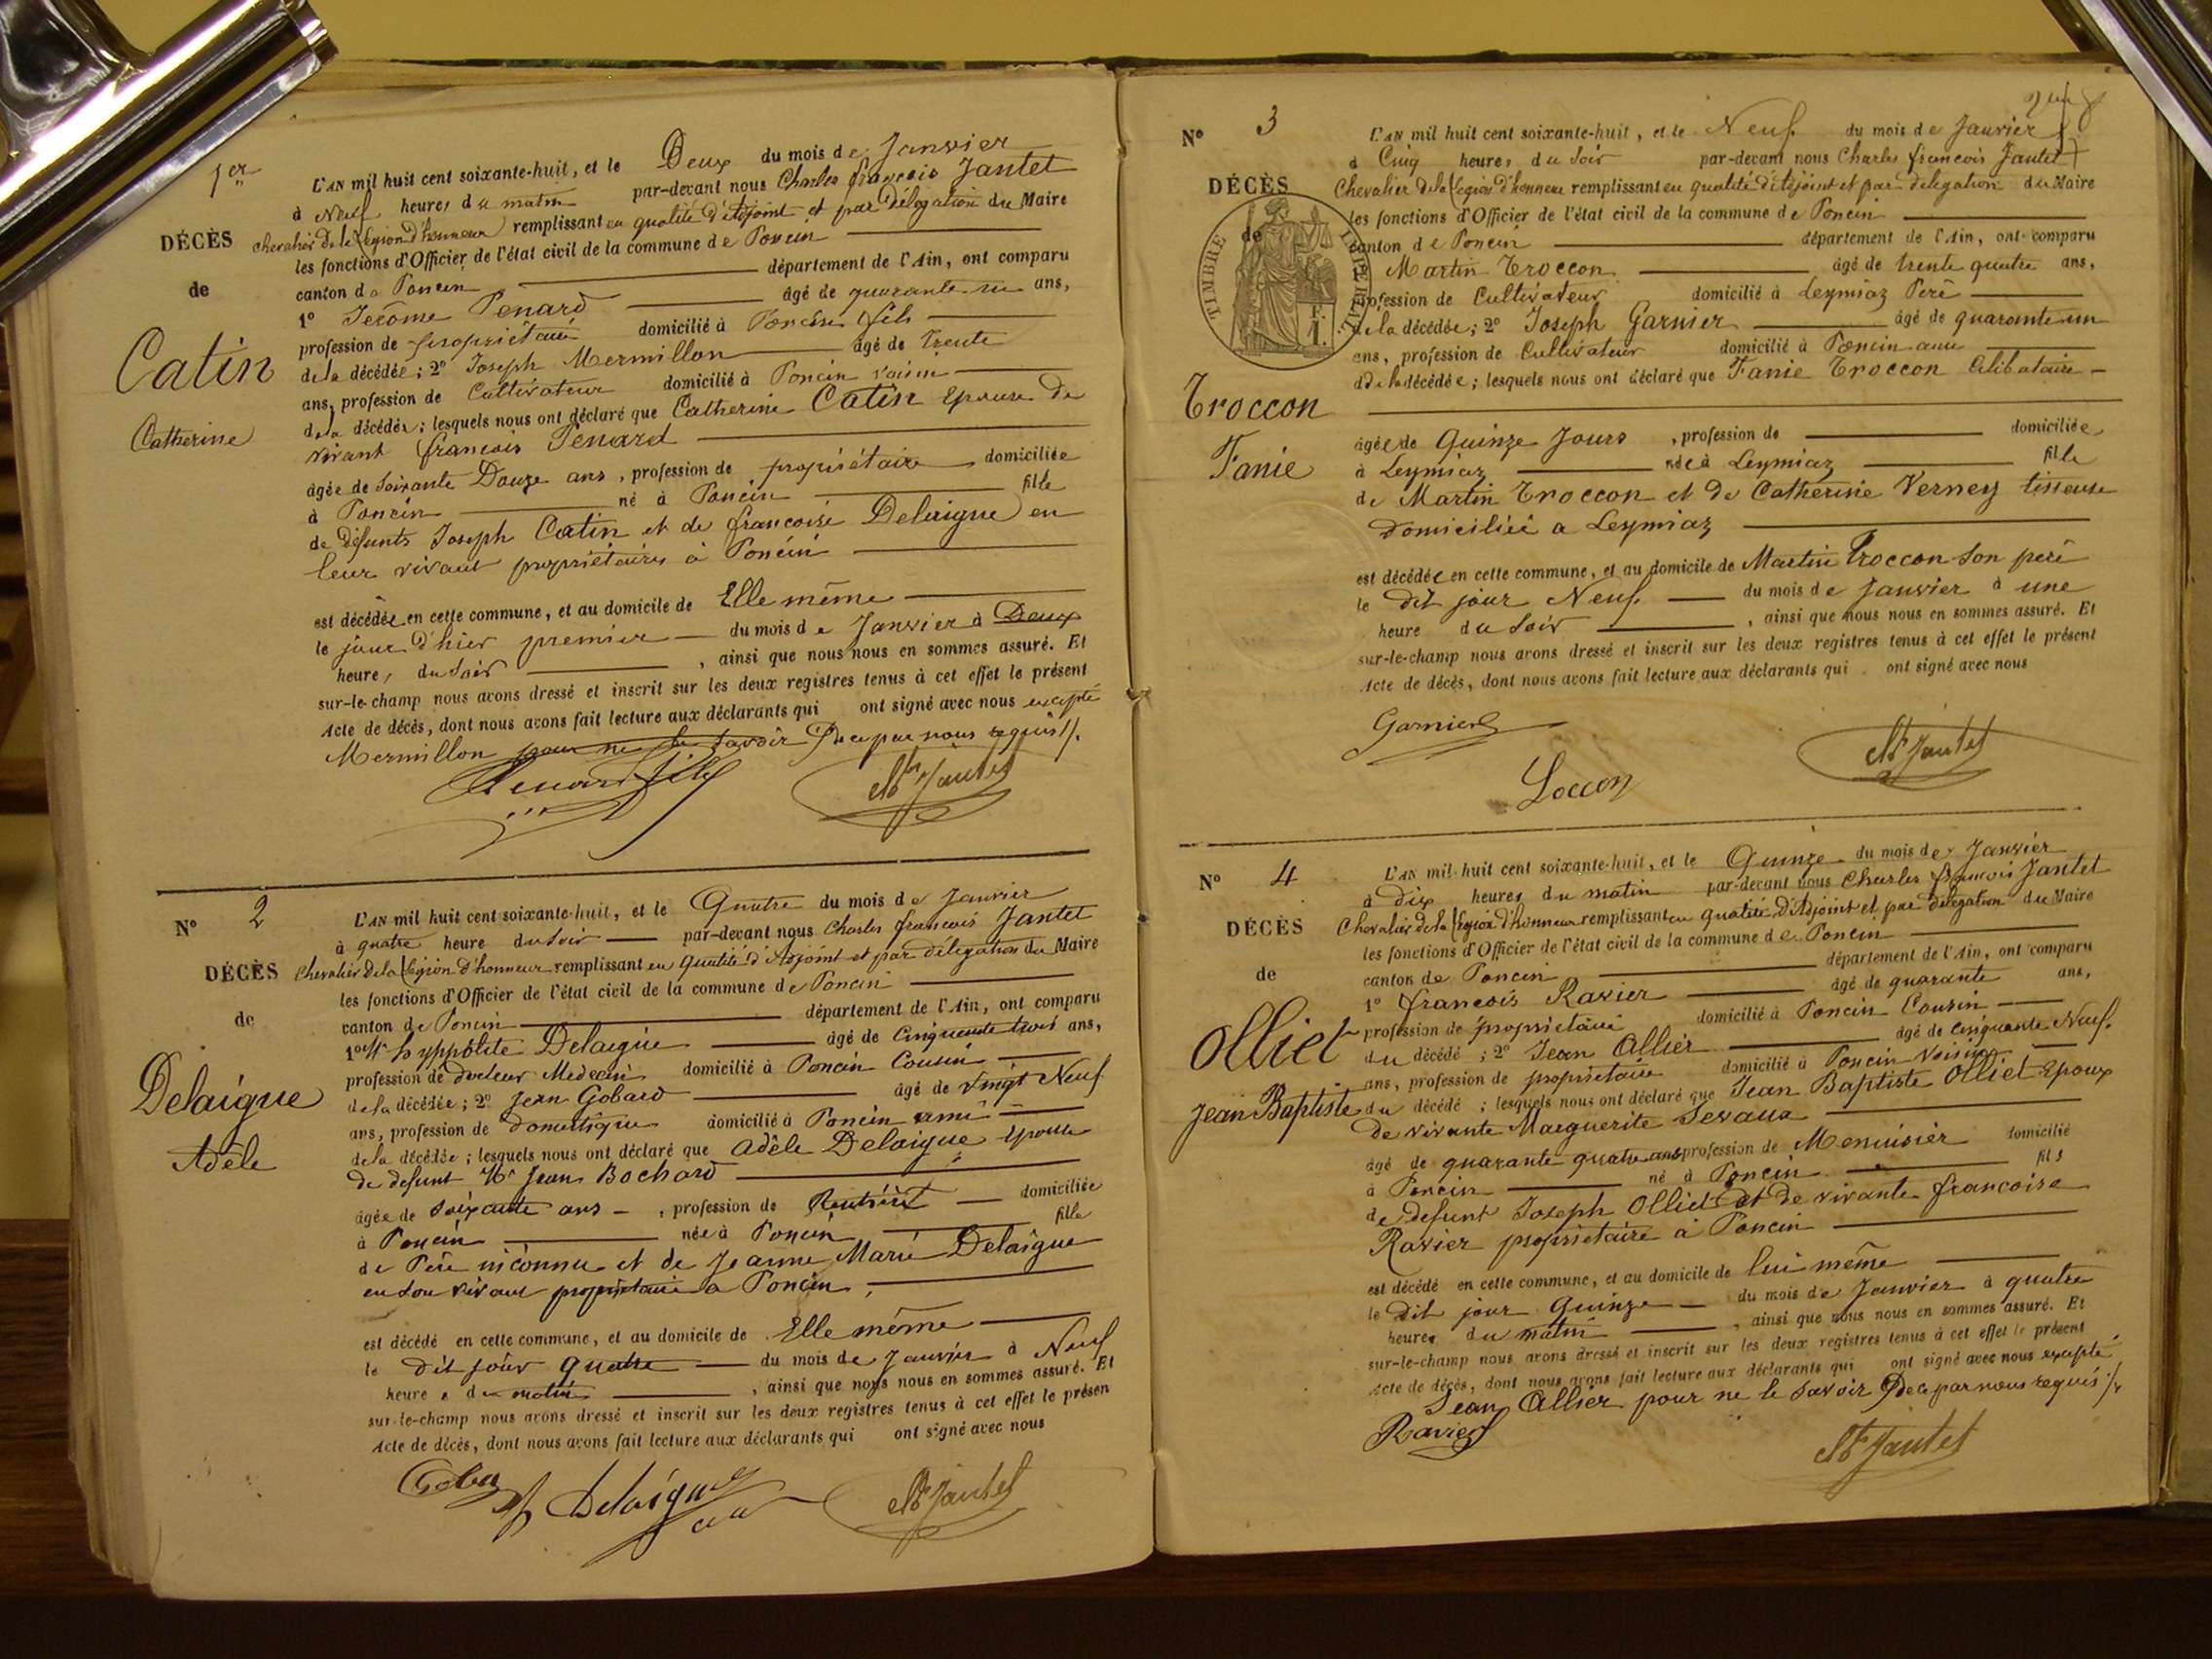 1er
DÉCÈS
de
Catin
Catherine
L'AN mil huit cent soixante-huit, et le Deux du mois de Janvier
à Neuf heures du matin par-devant nous Charles françois Jantet
chevalier de la Légion d'honneur remplissant en qualité d'adjoint et par délégation du Maire
les fonctions d'Officier de l'état civil de la commune de Poncin
canton de Poncin département de l'Ain, ont comparu
1° Jerôme Penard âgé de quarante un ans,
profession de propriétaire domicilié à Poncin fils
de la décédée; 2° Joseph Mermillon âgé de trente
ans, profession de Cultivateur domicilié à Poncin voisin
de la décédée; lesquels nous ont déclaré que Catherine Catin Epouse de
vivant françois Penard
âgée de Soixante Douze ans, profession de propriétaire domiciliée
à Poncin né à Poncin fille
de Défunts Joseph Catin et de françoise Delaigue en
leur vivant propriétaires à Poncin
est décédée en cette commune, et au domicile de Elle même
le jour d'hier premier du mois de Janvier à Deux
heures du Soir, ainsi que nous nous en sommes assuré. Et
sur-le-champ nous avons dressé et inscrit sur les deux registres tenus à cet effet le présent
Acte de décès, dont nous avons fait lecture aux déclarants qui ont signé avec nous excepté
Mermillon pour ne le savoir De ce par nous requis /.
Penard fils
Jantet
N° 2
DÉCÈS
de
Delaigue
Adèle
L'AN mil huit cent soixante-huit, et le Quatre du mois de Janvier
à quatre heure du Soir par-devant nous Charles françois Jantet
Chevalier de la Légion d'honneur remplissant en Qualité d'Adjoint et par délégation du Maire
les fonctions d'Officier de l'état civil de la commune de Poncin
canton de Poncin département de l'Ain, ont comparu
1° Mr hyppolite Delaigue âgé de Cinquante trois ans,
profession de docteur Medecin domicilié à Poncin Cousin
de la décédée; 2° Jean Gobard âgé de Vingt Neuf
ans, profession de domestique domicilié à Poncin ami
de la décédée; lesquels nous ont déclaré que Adèle Delaigue Epouse
de defunt Mr Jean Bochard
âgée de Soixante ans, profession de Rentière domiciliée
à Poncin née à Poncin fille
de Père inconnu et de Jeanne Marie Delaigue
en son vivant propriétaire à Poncin,
est décédé en cette commune, et au domicile de Elle même
le dit jour quatre du mois de Janvier à Neuf
heures du matin, ainsi que nous nous en sommes assuré. Et
sur-le-champ nous avons dressé et inscrit sur les deux registres tenus à cet effet le présen
Acte de décès, dont nous avons fait lecture aux déclarants qui ont signé avec nous
h Delaigue
Jantet
N° 3
DÉCÈS
de
TIMBRE IMPÉRIAL
F.
1.
Troccon
Fanie
L'AN mil huit cent soixante-huit, et le Neuf du mois de Janvier
à Cinq heures du Soir par-devant nous Charles françois Jantet
Chevalier de la Légion d'honneur remplissant en qualité d'Adjoint et par délégation du Maire
les fonctions d'Officier de l'état civil de la commune de Poncin
canton de Poncin département de l'Ain, ont comparu
Martin Troccon âgé de trente quatre ans,
profession de Cultivateur domicilié à Leymiaz Père
de la décédée; 2° Joseph Garnier âgé de quarante un
ans, profession de Cultivateur domicilié à Poncin ami
de la décédée; lesquels nous ont déclaré que Fanie Troccon Célibataire
âgée de Quinze Jours, profession de domiciliée
à Leymiaz née à Leymiaz fille
de Martin Troccon et de Catherine Verney tisseuse
domiciliée a Leymiaz
est décédée en cette commune, et au domicile de Martin Troccon Son père
le dit jour Neuf du mois de Janvier à une
heure du Soir, ainsi que nous nous en sommes assuré. Et
sur-le-champ nous avons dressé et inscrit sur les deux registres tenus à cet effet le présent
Acte de décès, dont nous avons fait lecture aux déclarants qui ont signé avec nous
Garnier
Jantet
N° 4
DÉCÈS
de
Olliet
Jean Baptiste
L'AN mil huit cent soixante-huit, et le Quinze du mois de Janvier
à Dix heures du matin par-devant nous Charles françois Jantet
Chevalier de la Légion d'honneur remplissant en qualité d'Adjoint et par délégation du Maire
les fonctions d'Officier de l'état civil de la commune de Poncin
canton de Poncin département de l'Ain, ont comparu
1° françois Ravier âgé de quarante ans,
profession de propriétaire domicilié à Poncin Cousin
du décédé; 2° Jean Allier âgé de cinquante Neuf
ans, profession de propriétaire domicilié à Poncin Voisin
du décédé; lesquels nous ont déclaré que Jean Baptiste Olliet Epoux
de vivante Marguerite Sevaux
âgé de quarante quatre ans profession de Menuisier domicilié
à Poncin né à Poncin fils
de defunt Joseph Olliet et de vivante françoise
Ravier propriétaire à Poncin
est décédé en cette commune, et au domicile de lui même
le dit jour Quinze du mois de Janvier à quatre
heures du matin, ainsi que nous nous en sommes assuré. Et
sur-le-champ nous avons dressé et inscrit sur les deux registres tenus à cet effet le présent
Acte de décès, dont nous avons fait lecture aux déclarants qui ont signé avec nous excepté
Jean Allier pour ne le savoir De ce par nous requis /.
Ravier
Jantet